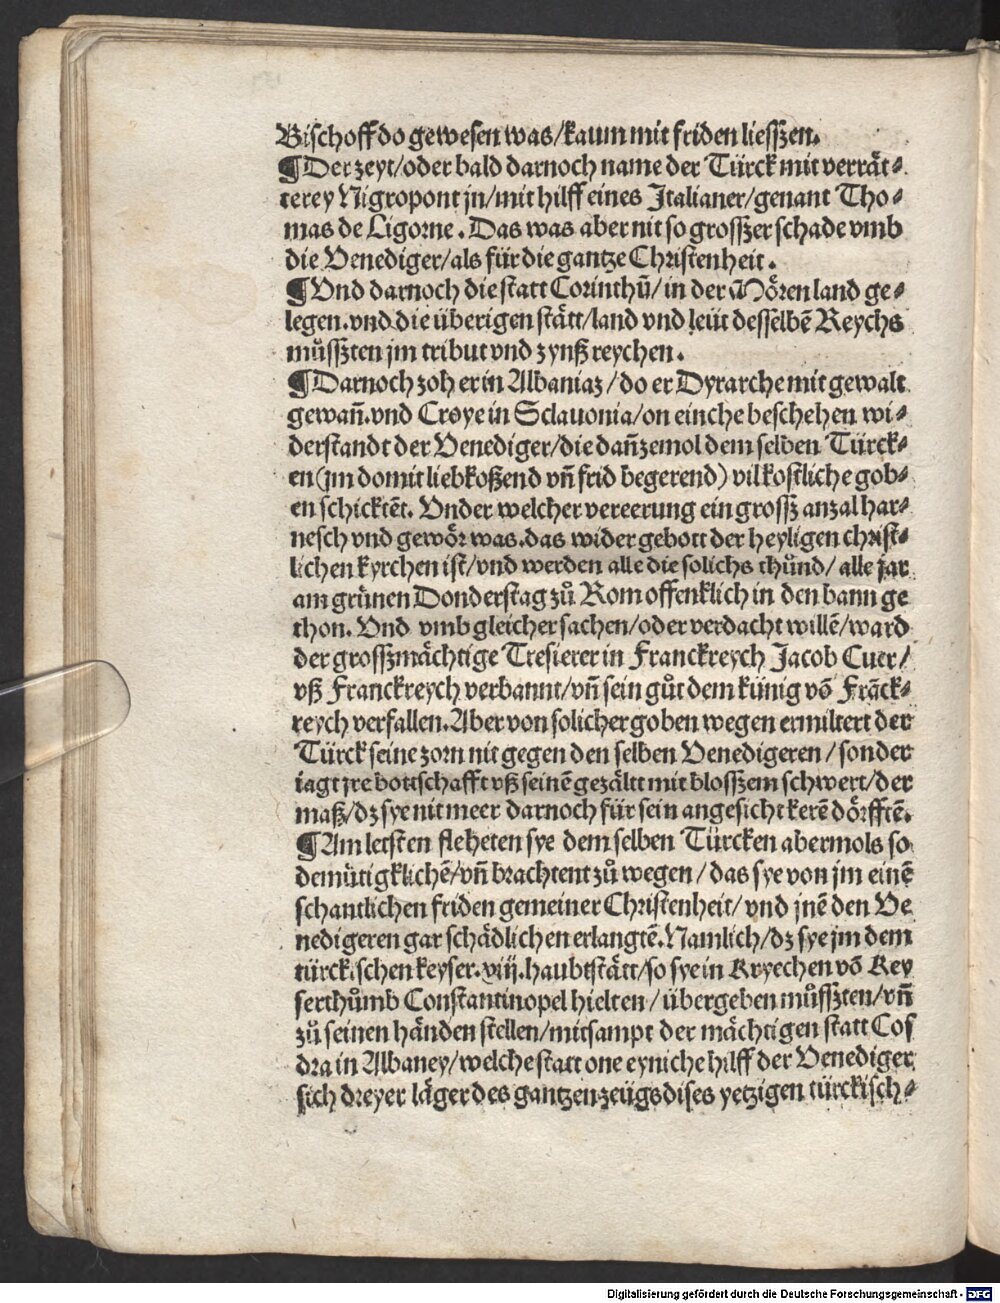 Bischoff do gewesen was/kaum mit friden liessʒen.
¶Der zeyt/oder bald darnoch name der Türck mit verrät⸗
terey Nigropont jn/mit hilff eines Italianer/genant Tho⸗
mas de Ligorne. Das was aber nit so grossʒer schade vmb
die Venediger/als für die gantze Christenheit.
¶Vnd darnoch die statt Corinthū/in der Mören land ge⸗
legen.vnd die überigen stätt/land vnd leüt desselbē Reychs
můssʒten jm tribut vnd zynß reychen.
¶Darnoch zoh er in Albaniaz/do er Dyrarche mit gewalt
gewañ.vnd Croye in Sclauonia/on einche beschehen wi⸗
derstandt der Venediger/die dañzemol dem selben Türck⸗
en (jm domit liebkoßend vñ frid begerend) vil kostliche gob⸗
en schicktēt. Vnder welcher vereerung ein grossʒ anzal har⸗
nesch vnd gewör was.das wider gebott der heyligen christ⸗
lichen kyrchen ist/vnd werden alle die solichs thůnd/alle jar
am grünen Donderstag zů Rom offenklich in den bann ge
thon. Vnd vmb gleicher sachen/oder verdacht willē/ward
der grossʒmächtige Tresierer in Franckreych Jacob Cuer/
vß Franckreych verbannt/vñ sein gůt dem künig vō Frāck⸗
reych verfallen.Aber von solicher goben wegen ermiltert der
Türck seine zorn nit gegen den selben Venedigeren/sonder
iagt jre bottschafft vß seinē gezältt mit blossʒem schwert/der
maß/dʒ sye nit meer darnoch für sein angesicht kerē dörfftē.
¶Am letsten fleheten sye dem selben Türcken abermols so
demütigklichē/vñ brachtent zů wegen/das sye von jm einē
schantlichen friden gemeiner Christenheit/vnd jnē den Ve
nedigeren gar schädlichen erlangtē.Namlich/dʒ sye jm dem
türckischen keyser.viij.haubtstätt/so sye in Kryechen vō Key
serthůmb Constantinopel hielten/übergeben můssʒten/vñ
zů seinen händen stellen/mitsampt der mächtigen statt Cos
dra in Albaney/welche statt one eyniche hilff der Venediger
sich dreyer läger des gantzen zeügs dises yetzigen türckisch⸗
Digitalisierung gefördert durch die Deutsche Forschungsgemeinschaft - DFG